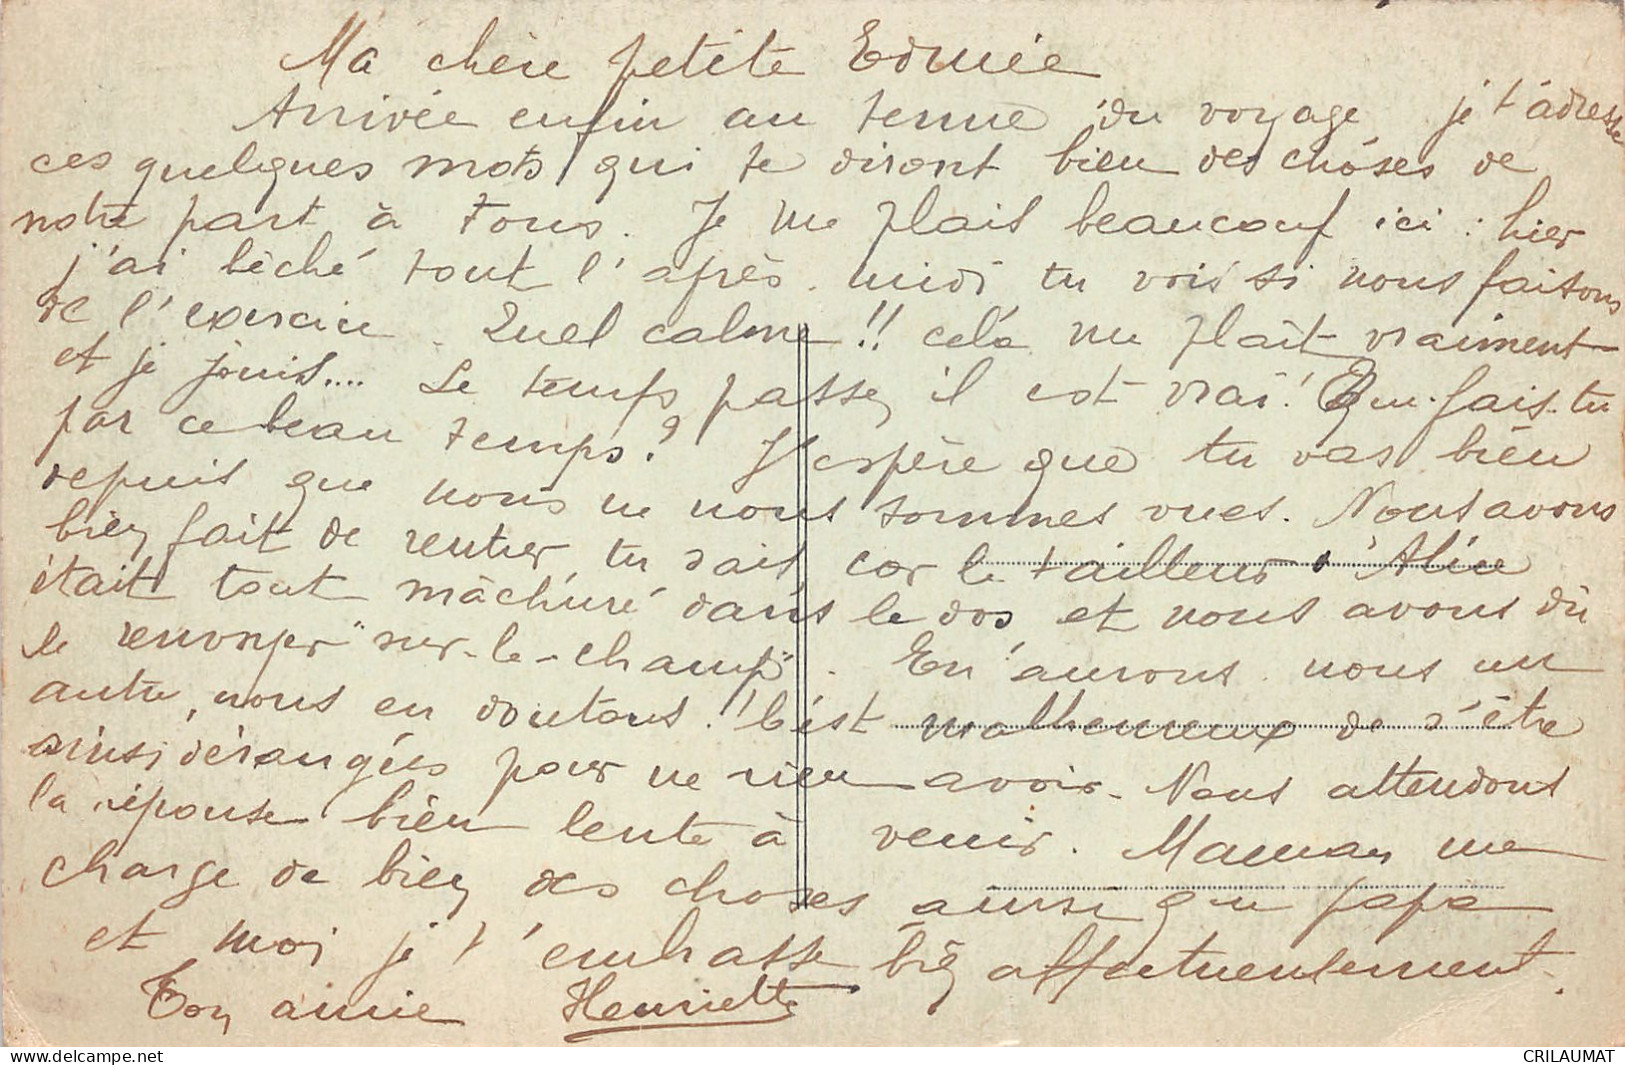 Ma chère petite Edmée
Arrivée enfin au terme du voyage je t'adresse
ces quelques mots qui te diront bien des choses de
notre part à tous. Je me plais beaucouf ici : hier
j'ai bêché tout l'après-midi tu vois si nous faisons
de l'exercice. Quel calme !! celà me plaît vraiment
et je jouis.... Le temps passe, il est vrai ! Que fais-tu
par ce beau temps ? J'espère que tu vas bien
depuis que nous ne nous sommes vues. Nous avons
bien fait de rentrer, tu sais, car le tailleur d'Aline
était tout mâchuré dans le dos et nous avons dû
le renvoyer "sur-le-champ". En aurons nous un
autre, nous en doutons ! C'est malheureux de s'être
ainsi dérangées pour ne rien avoir. Nous attendons
la réponse bien lente à venir. Maman me
charge de bien des choses ainsi que papa
et moi je t'embrasse bien affectueusement.
Ton amie Henriette
delcampe.net
CRILAUMAT